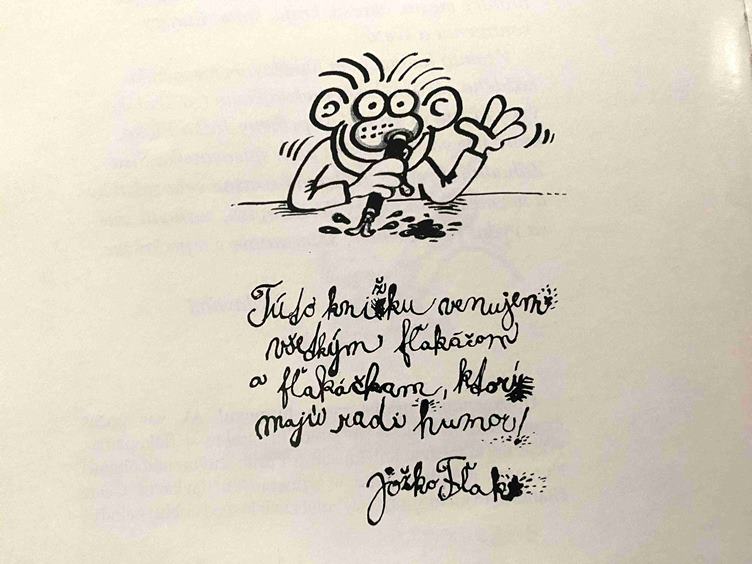 Túto knižku venujem
všetkým fľakážom
a fľakáčkam, ktorý
majú radi humor!
Jožko Fľak